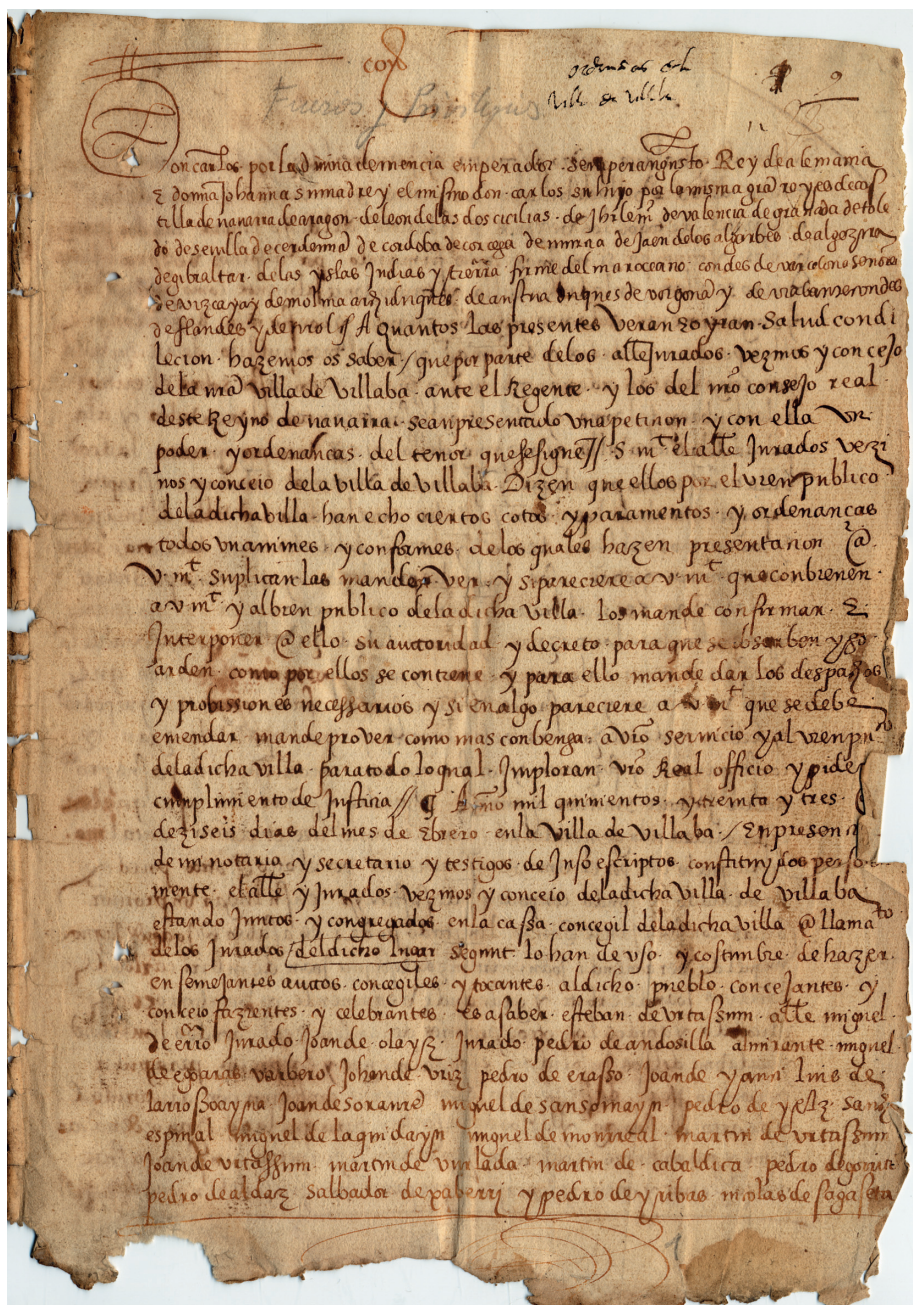 ordenanças de la
villa de villaba
Fueros y Privilejios
Don carlos por la divina clemencia emperador semper augusto Rey de alemania
E donna Johanna su madre y el mismo don carlos su hijo por la misma gra reyes de cas
tilla de navarra de aragon de leon de las dos cicilias de Jhrlem de valencia de granada de tole
do de sevilla de cerdenna de cordoba de corcega de murcia de Jaen de los algarbes de algezira
de gibraltar de las yslas Indias y tierra firme del mar oceano condes de varcelona sennores
de vizcaya y de molina archiduques de austria duques de vorgona y de vrabante condes
de flandes y de tirol // A quantos las presentes veran E oyran salud con di
lecion hazemos os saber / que por parte de los alle Jurados vezinos y concejo
de la nra villa de villaba ante el Regente y los del nro consejo real
deste Reyno de navarra se an presentado una peticion y con ella un
poder y ordenancas del tenor que se sigue // S. m.t el alle Jurados vezi
nos y conceio de la villa de villaba Dizen que ellos por el vien publico
de la dicha villa han echo ciertos cotos y paramentos y ordenancas
todos unanimes y conformes de los quales hazen presentacion @
v. m.t suplican las mande ver y si pareciere a v. m.t que conbienen
a v. m.t y al bien publico de la dicha villa los mande confirmar E
Interponer @ ello su autoridad y decreto para que se obserben y go
arden como por ellos se contiene y para ello mande dar los despachos
y probissiones necessarios y si en algo pareciere a v. m.t que se debe
emendar mande prover como mas conbenga a vro servicio y al vien pu.co
de la dicha villa para todo lo qual Imploran vro Real officio y piden
cumplimiento de Justicia // Anno mil quinientos y treinta y tres
deziseis dias del mes de Ebrero en la villa de villaba / En presencia
de mi notario y secretario y testigos de Juso escriptos constituydos personal
mente el alle y Jurados vezinos y conceio de la dicha villa de villaba
estando Juntos y congregados en la cassa concegil de la dicha villa @ llama.to
de los Jurados / del dicho lugar segunt lo han de uso y costumbre de hazer
en semejantes autos concegiles y tocantes al dicho pueblo concejantes y
conceio fazientes y celebrantes es a saber esteban de urtassun alle miguel
de erro Jurado Joan de olayz Jurado pedro de andosilla almirante miguel
de egaras varbero Johan de uriz pedro de erasso Joan de yany luis de
larrossoayna Joan de sorauren miguel de sansomayn pedro de yelz sanz
espinal miguel de laquidayn miguel de monrreal martin de urtassun
Joan de urtassun martin de vurlada martin de cabaldica pedro de gorriti
pedro de aldaz salbador de paberri y pedro de yribas nicolas de sagaseta